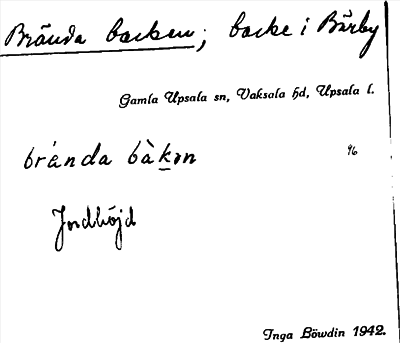 Brända backen; backe i Bärby
Gamla Upsala sn, Vaksala hd, Upsala l.
bránda bàkən 96
Jordhöjd
Inga Löwdin 1942.